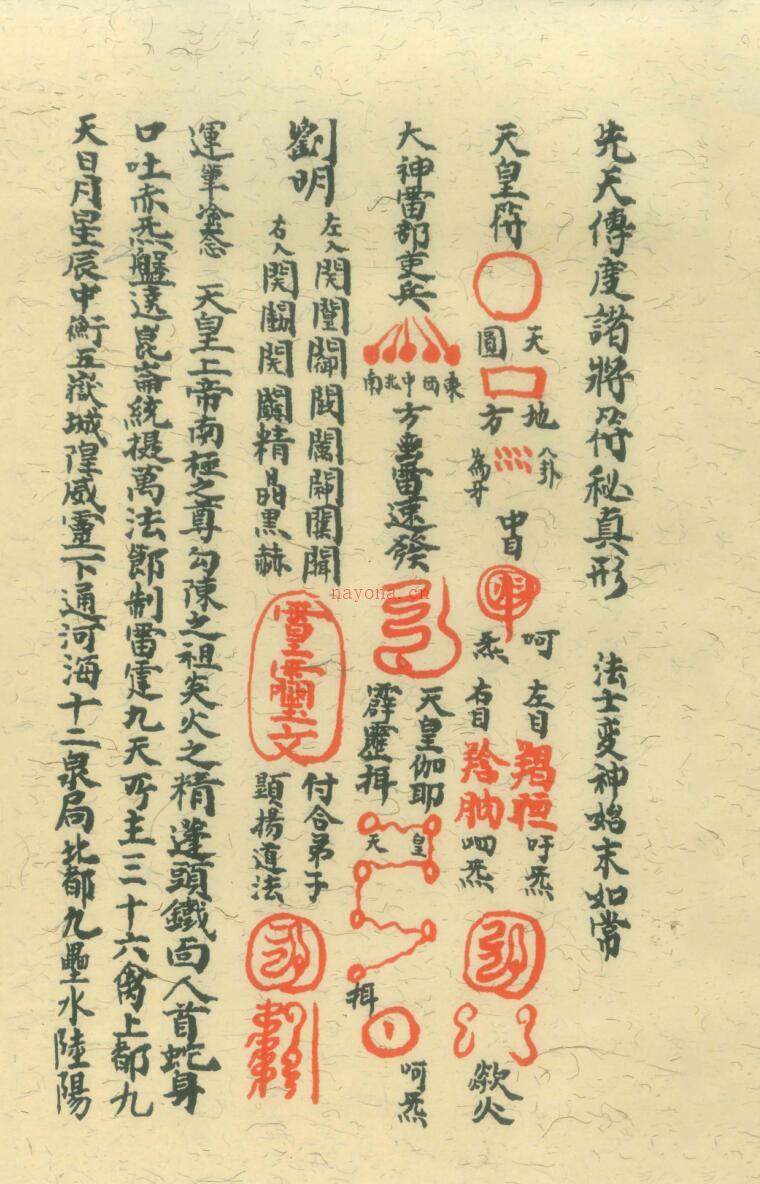 先天傳度諸將符秘真形 法士变神始末如常
天皇符 天圓 地方 八卦為牙 中目 呵炁 左目 右目 吁炁 呬炁 欻火
大神雷部吏兵 東西中北南方 雷速發 天皇伽耶 霹靂揖 天皇 揖 呵炁
劉明 左入 右入 精晶黑赫 靈文 付合弟子 顕揚道法
運筆塗念 天皇上帝南極之尊勾陳之祖炎火之精蓬頭鐵面人首蛇身
口吐赤炁盤遶崑崙統提萬法節制雷霆九天所主三十六禽上都九
天日月星辰中衡五嶽城隍威靈下通河海十二泉局北都九壘水陸陽
nayona.cn